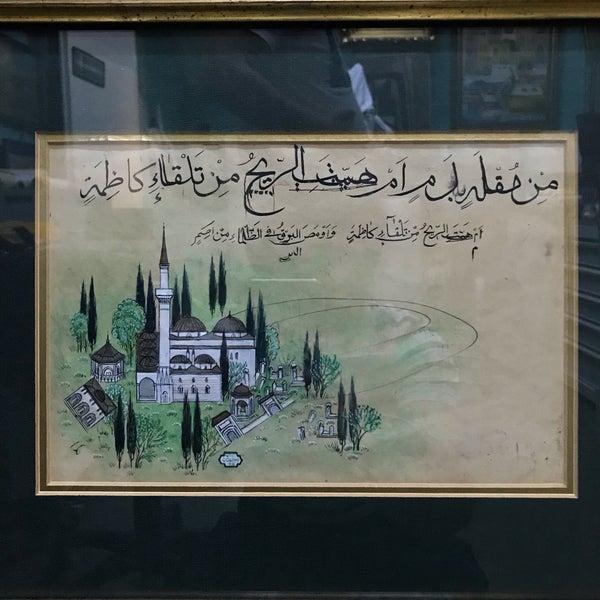 مِنْ مُقْلَةٍ بِدَمٍ اَمْ هَبَّتِ الرِّيحُ مِنْ تَلْقَاءِ كَاظِمَةٍ
اَمْ هَبَّتِ الرِّيحُ مِنْ تَلْقَاءِ كَاظِمَةٍ وَاَوْمَضَ الْبَرْقُ فِي الظَّلْمَاءِ مِنْ اِضَمِ